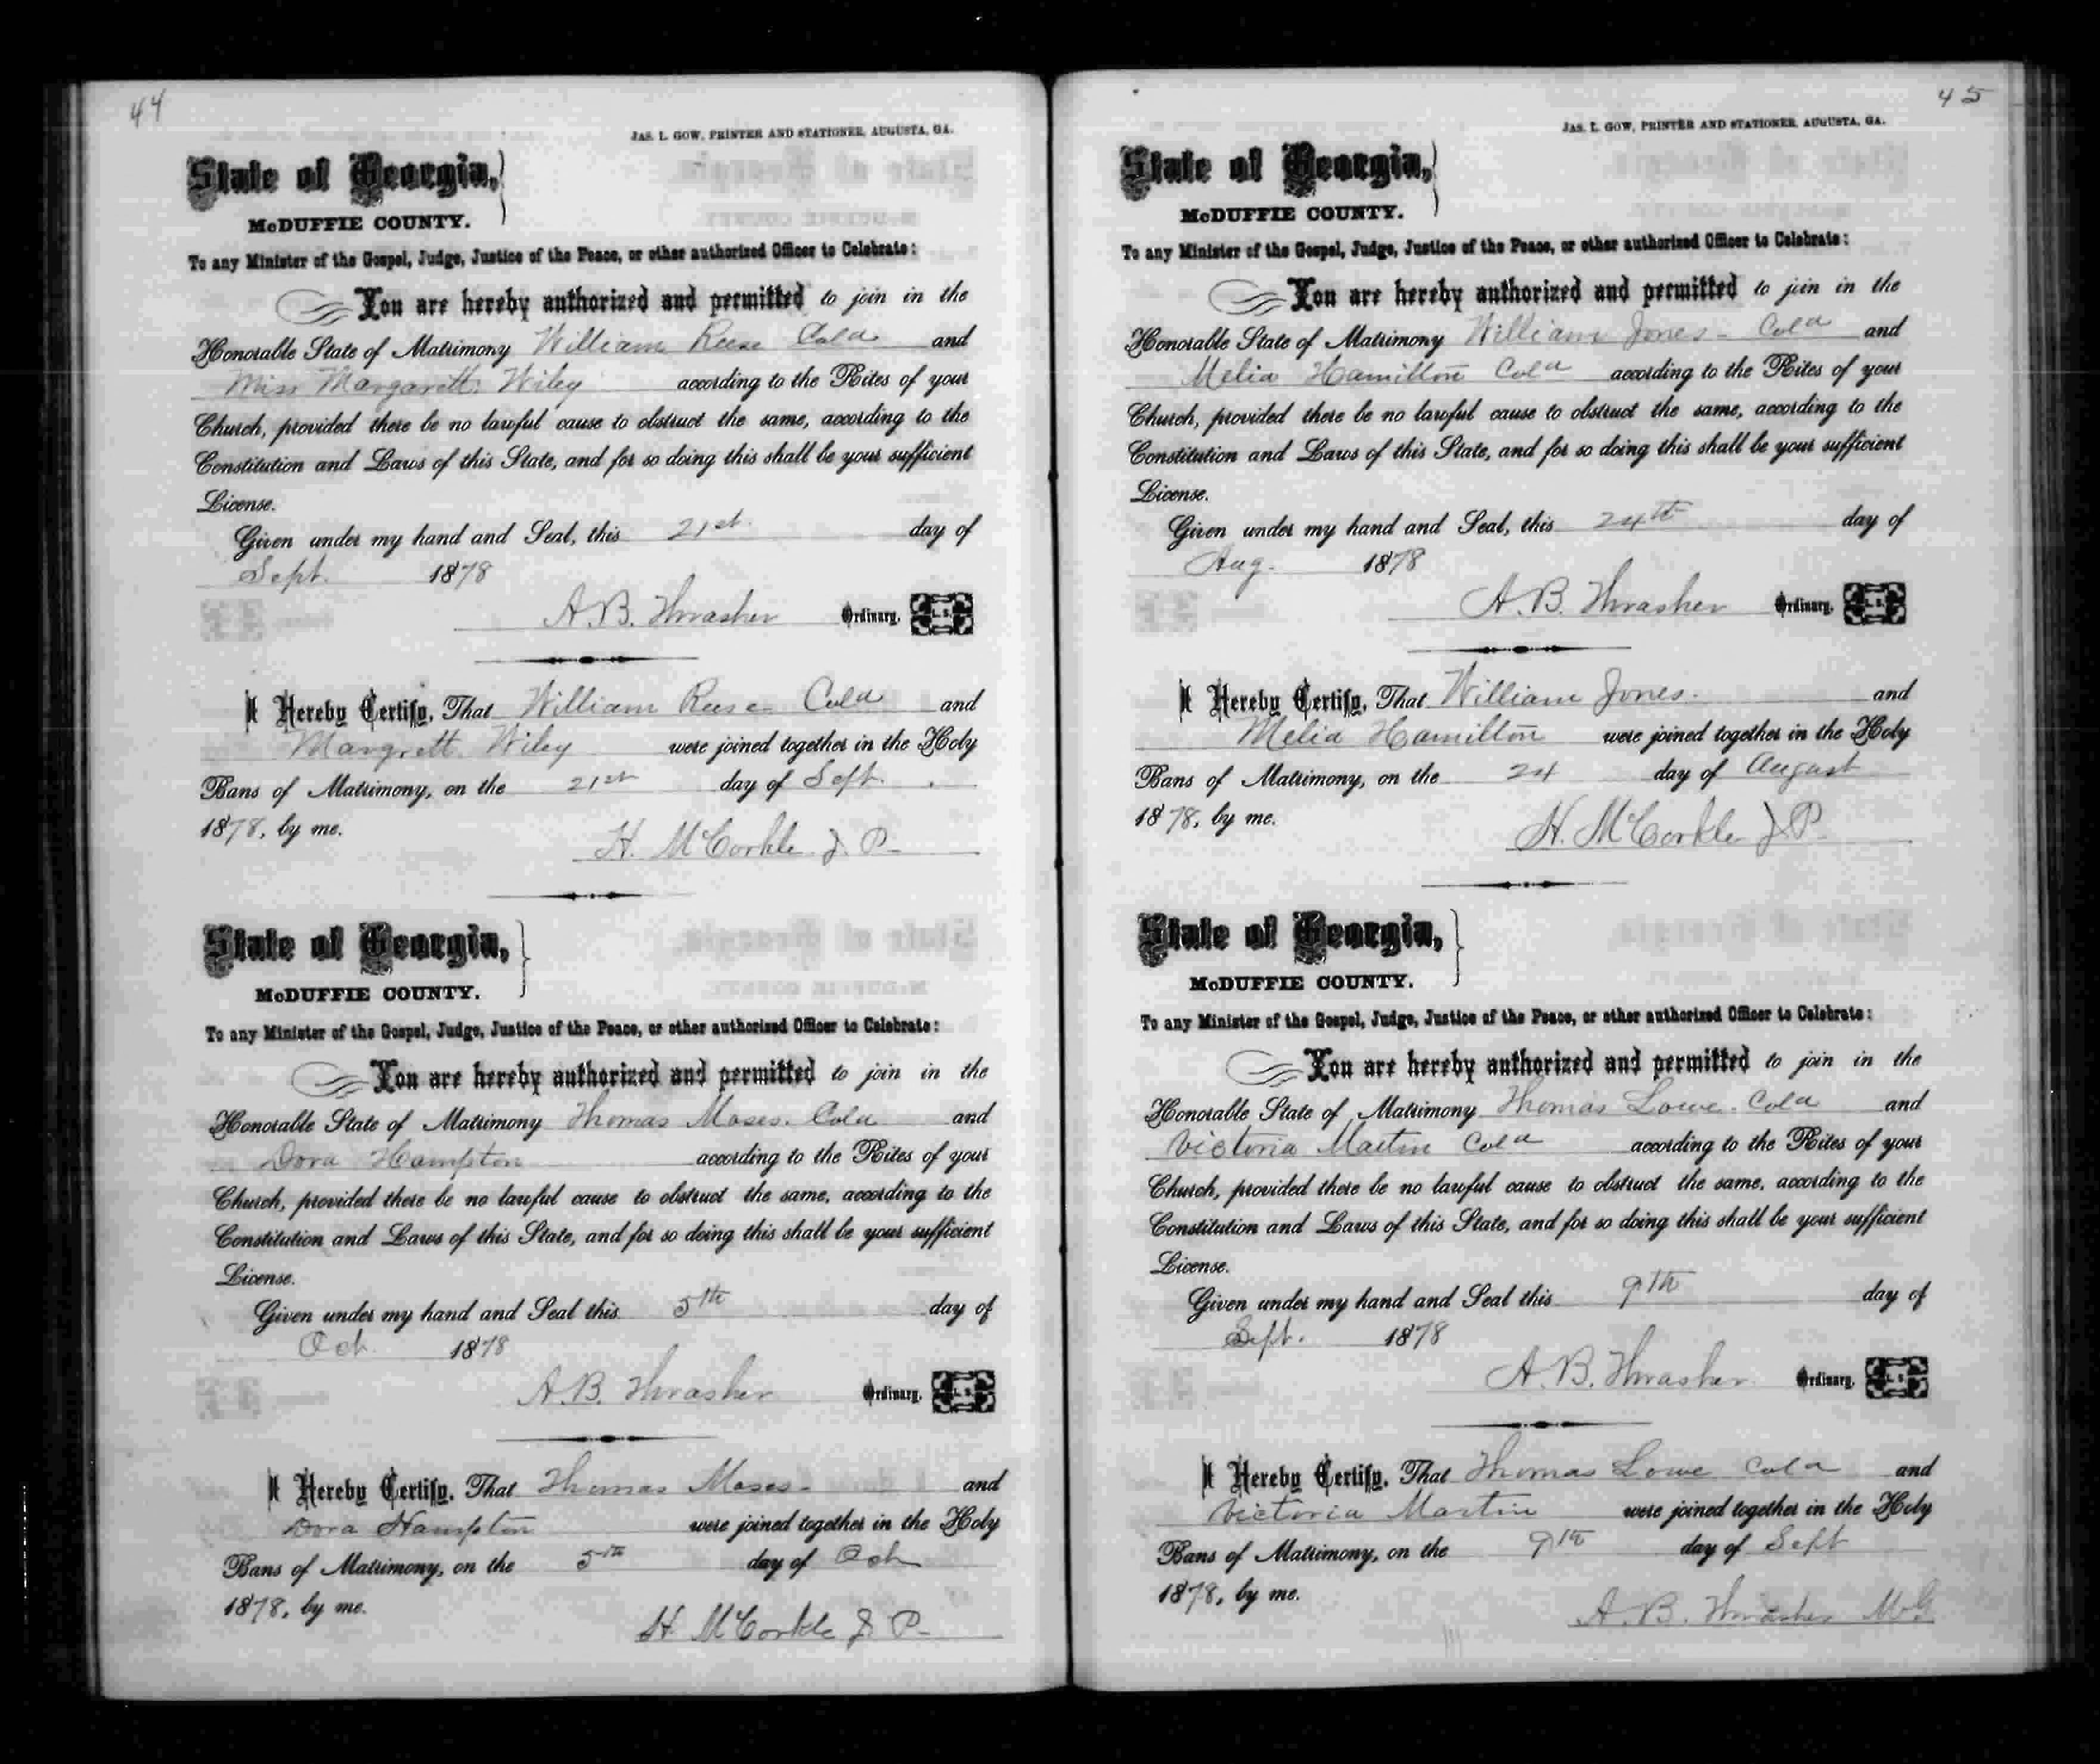 44
JAS. L. GOW, PRINTER AND STATIONER, AUGUSTA, GA.
State of Georgia,
McDUFFIE COUNTY.
To any Minister of the Gospel, Judge, Justice of the Peace, or other authorized Officer to Celebrate:
You are hereby authorized and permitted to join in the
Honorable State of Matrimony William Reese Cold and
Miss Margarett Wiley according to the Rites of your
Church, provided there be no lawful cause to obstruct the same, according to the
Constitution and Laws of this State, and for so doing this shall be your sufficient
License.
Given under my hand and Seal, this 21st day of
Sept. 1878
A. B. Thrasher Ordinary. L. S.
I Hereby Certify, That William Reese Cold and
Margrett Wiley were joined together in the Holy
Bans of Matrimony, on the 21st day of Sept.
1878, by me.
H. McCorkle J. P.
State of Georgia,
McDUFFIE COUNTY.
To any Minister of the Gospel, Judge, Justice of the Peace, or other authorized Officer to Celebrate:
You are hereby authorized and permitted to join in the
Honorable State of Matrimony Thomas Moses. Cold and
Dora Hampton according to the Rites of your
Church, provided there be no lawful cause to obstruct the same, according to the
Constitution and Laws of this State, and for so doing this shall be your sufficient
License.
Given under my hand and Seal this 5th day of
Oct 1878
A. B. Thrasher Ordinary. L. S.
I Hereby Certify, That Thomas Moses and
Dora Hampton were joined together in the Holy
Bans of Matrimony, on the 5th day of Oct
1878, by me.
H. McCorkle J. P.
45
JAS. L. GOW, PRINTER AND STATIONER, AUGUSTA, GA.
State of Georgia,
McDUFFIE COUNTY.
To any Minister of the Gospel, Judge, Justice of the Peace, or other authorized Officer to Celebrate:
You are hereby authorized and permitted to join in the
Honorable State of Matrimony William Jones - Cold and
Melia Hamilton Cold according to the Rites of your
Church, provided there be no lawful cause to obstruct the same, according to the
Constitution and Laws of this State, and for so doing this shall be your sufficient
License.
Given under my hand and Seal, this 24th day of
Aug. 1878
A. B. Thrasher Ordinary. L. S.
I Hereby Certify, That William Jones. and
Melia Hamilton were joined together in the Holy
Bans of Matrimony, on the 24 day of August
1878, by me.
H. McCorkle J. P.
State of Georgia,
McDUFFIE COUNTY.
To any Minister of the Gospel, Judge, Justice of the Peace, or other authorized Officer to Celebrate:
You are hereby authorized and permitted to join in the
Honorable State of Matrimony Thomas Lowe. Cold and
Victoria Martin Cold according to the Rites of your
Church, provided there be no lawful cause to obstruct the same, according to the
Constitution and Laws of this State, and for so doing this shall be your sufficient
License.
Given under my hand and Seal this 9th day of
Sept. 1878
A. B. Thrasher Ordinary. L. S.
I Hereby Certify, That Thomas Lowe Cold and
Victoria Martin were joined together in the Holy
Bans of Matrimony, on the 9th day of Sept
1878, by me.
A. B. Thrasher M.G